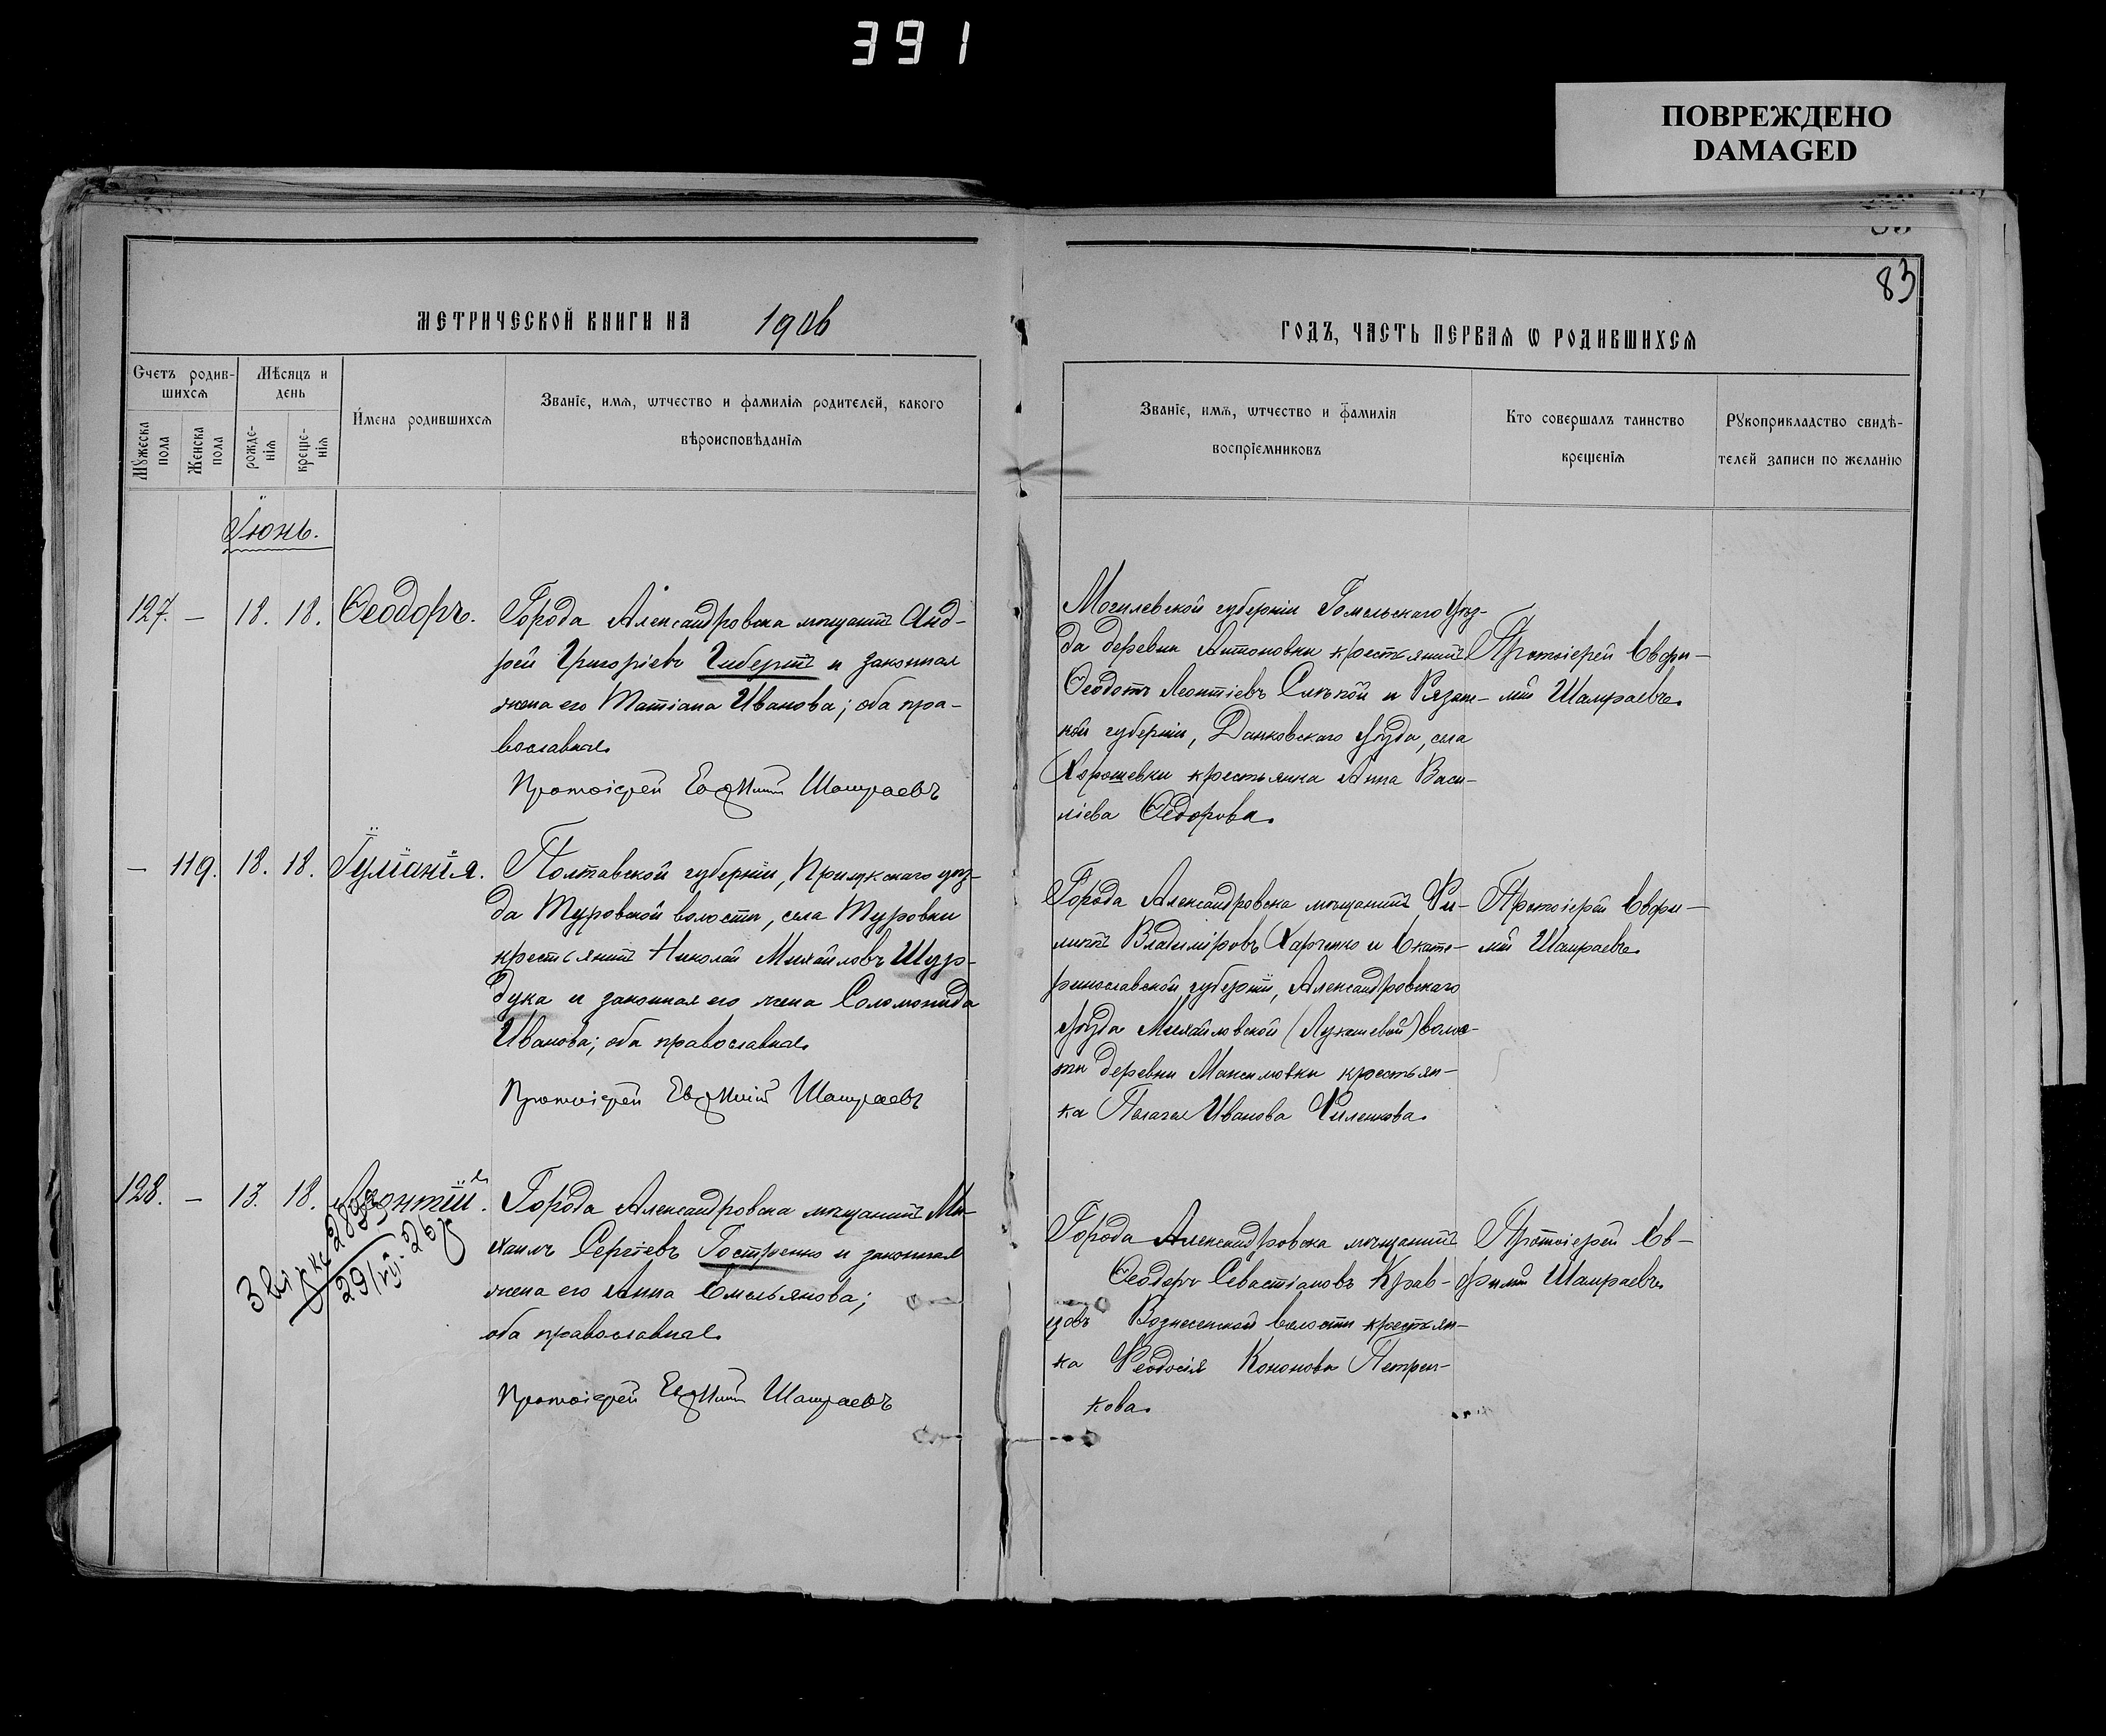 391
ПОВРЕЖДЕНО
DAMAGED
83
МЕТРИЧЕСКОЙ КНИГИ НА 1906
ГОДЪ, ЧАСТЬ ПЕРВАЯ Ѡ РОДИВШИХСЯ
Счетъ родив-
шихсѧ
Мѣсяцъ и
день
Мꙋжеска
пола
Женска
пола
рожде-
нїѧ
креще-
нїѧ
Имена родившихсѧ
Званїе, имѧ, ѡтчество и фамилїѧ родителей, какого
вѣроисповѣданїѧ
Званїе, имѧ, ѡтчество и фамилїѧ
воспрїемниковъ
Кто совершалъ таинство
крещенїѧ
Рꙋкоприкладство свидѣ-
телей записи по желанїю
Іюнь.
127. — 18. 18. Ѳеодоръ.
Города Александровска мѣщанинъ Анд-
рей Григоріевъ Гибертъ и законная
жена его Татіана Иванова; оба пра-
вославные.
Протоіерей Евфимій Шамраевъ
Могилевской губерніи Гомельскаго уѣз-
да деревни Антоновки крестьянинъ
Ѳеодотъ Леонтіевъ Слѣпой и Рязан-
кой губерніи, Данковскаго уѣзда, села
Хорошевки крестьянка Анна Васи-
ліева Ѳедорова.
Протоіерей Евфи-
мій Шамраевъ.
— 119. 18. 18. Іуліанія.
Полтавской губерніи, Прилукскаго уѣз-
да Туровской волости, села Туровки
крестьянинъ Николай Михайловъ Шур-
дука и законная его жена Соломонида
Иванова; оба православные.
Протоіерей Евфимій Шамраевъ
Города Александровска мѣщанинъ Фи-
липпъ Владиміровъ Харченко и Екате-
ринославской губерніи, Александровскаго
уѣзда Михайловской (Лукашевой) волос-
ти деревни Максимовки крестьян-
ка Пелагея Иванова Филенкова.
Протоіерей Евфи-
мій Шамраевъ.
128. — 13. 18. Леонтій.
29/VII-26
Города Александровска мѣщанинъ Ми-
хаилъ Сергіевъ Гостренко и законная
жена его Анна Емельянова;
оба православные.
Протоіерей Евфимій Шамраевъ
Города Александровска мѣщанинъ
Ѳеодоръ Севастіановъ Крав-
цовъ Вознесенской волости крестьян-
ка Феодосія Кононова Петрен-
кова.
Протоіерей Ев-
фимій Шамраевъ.